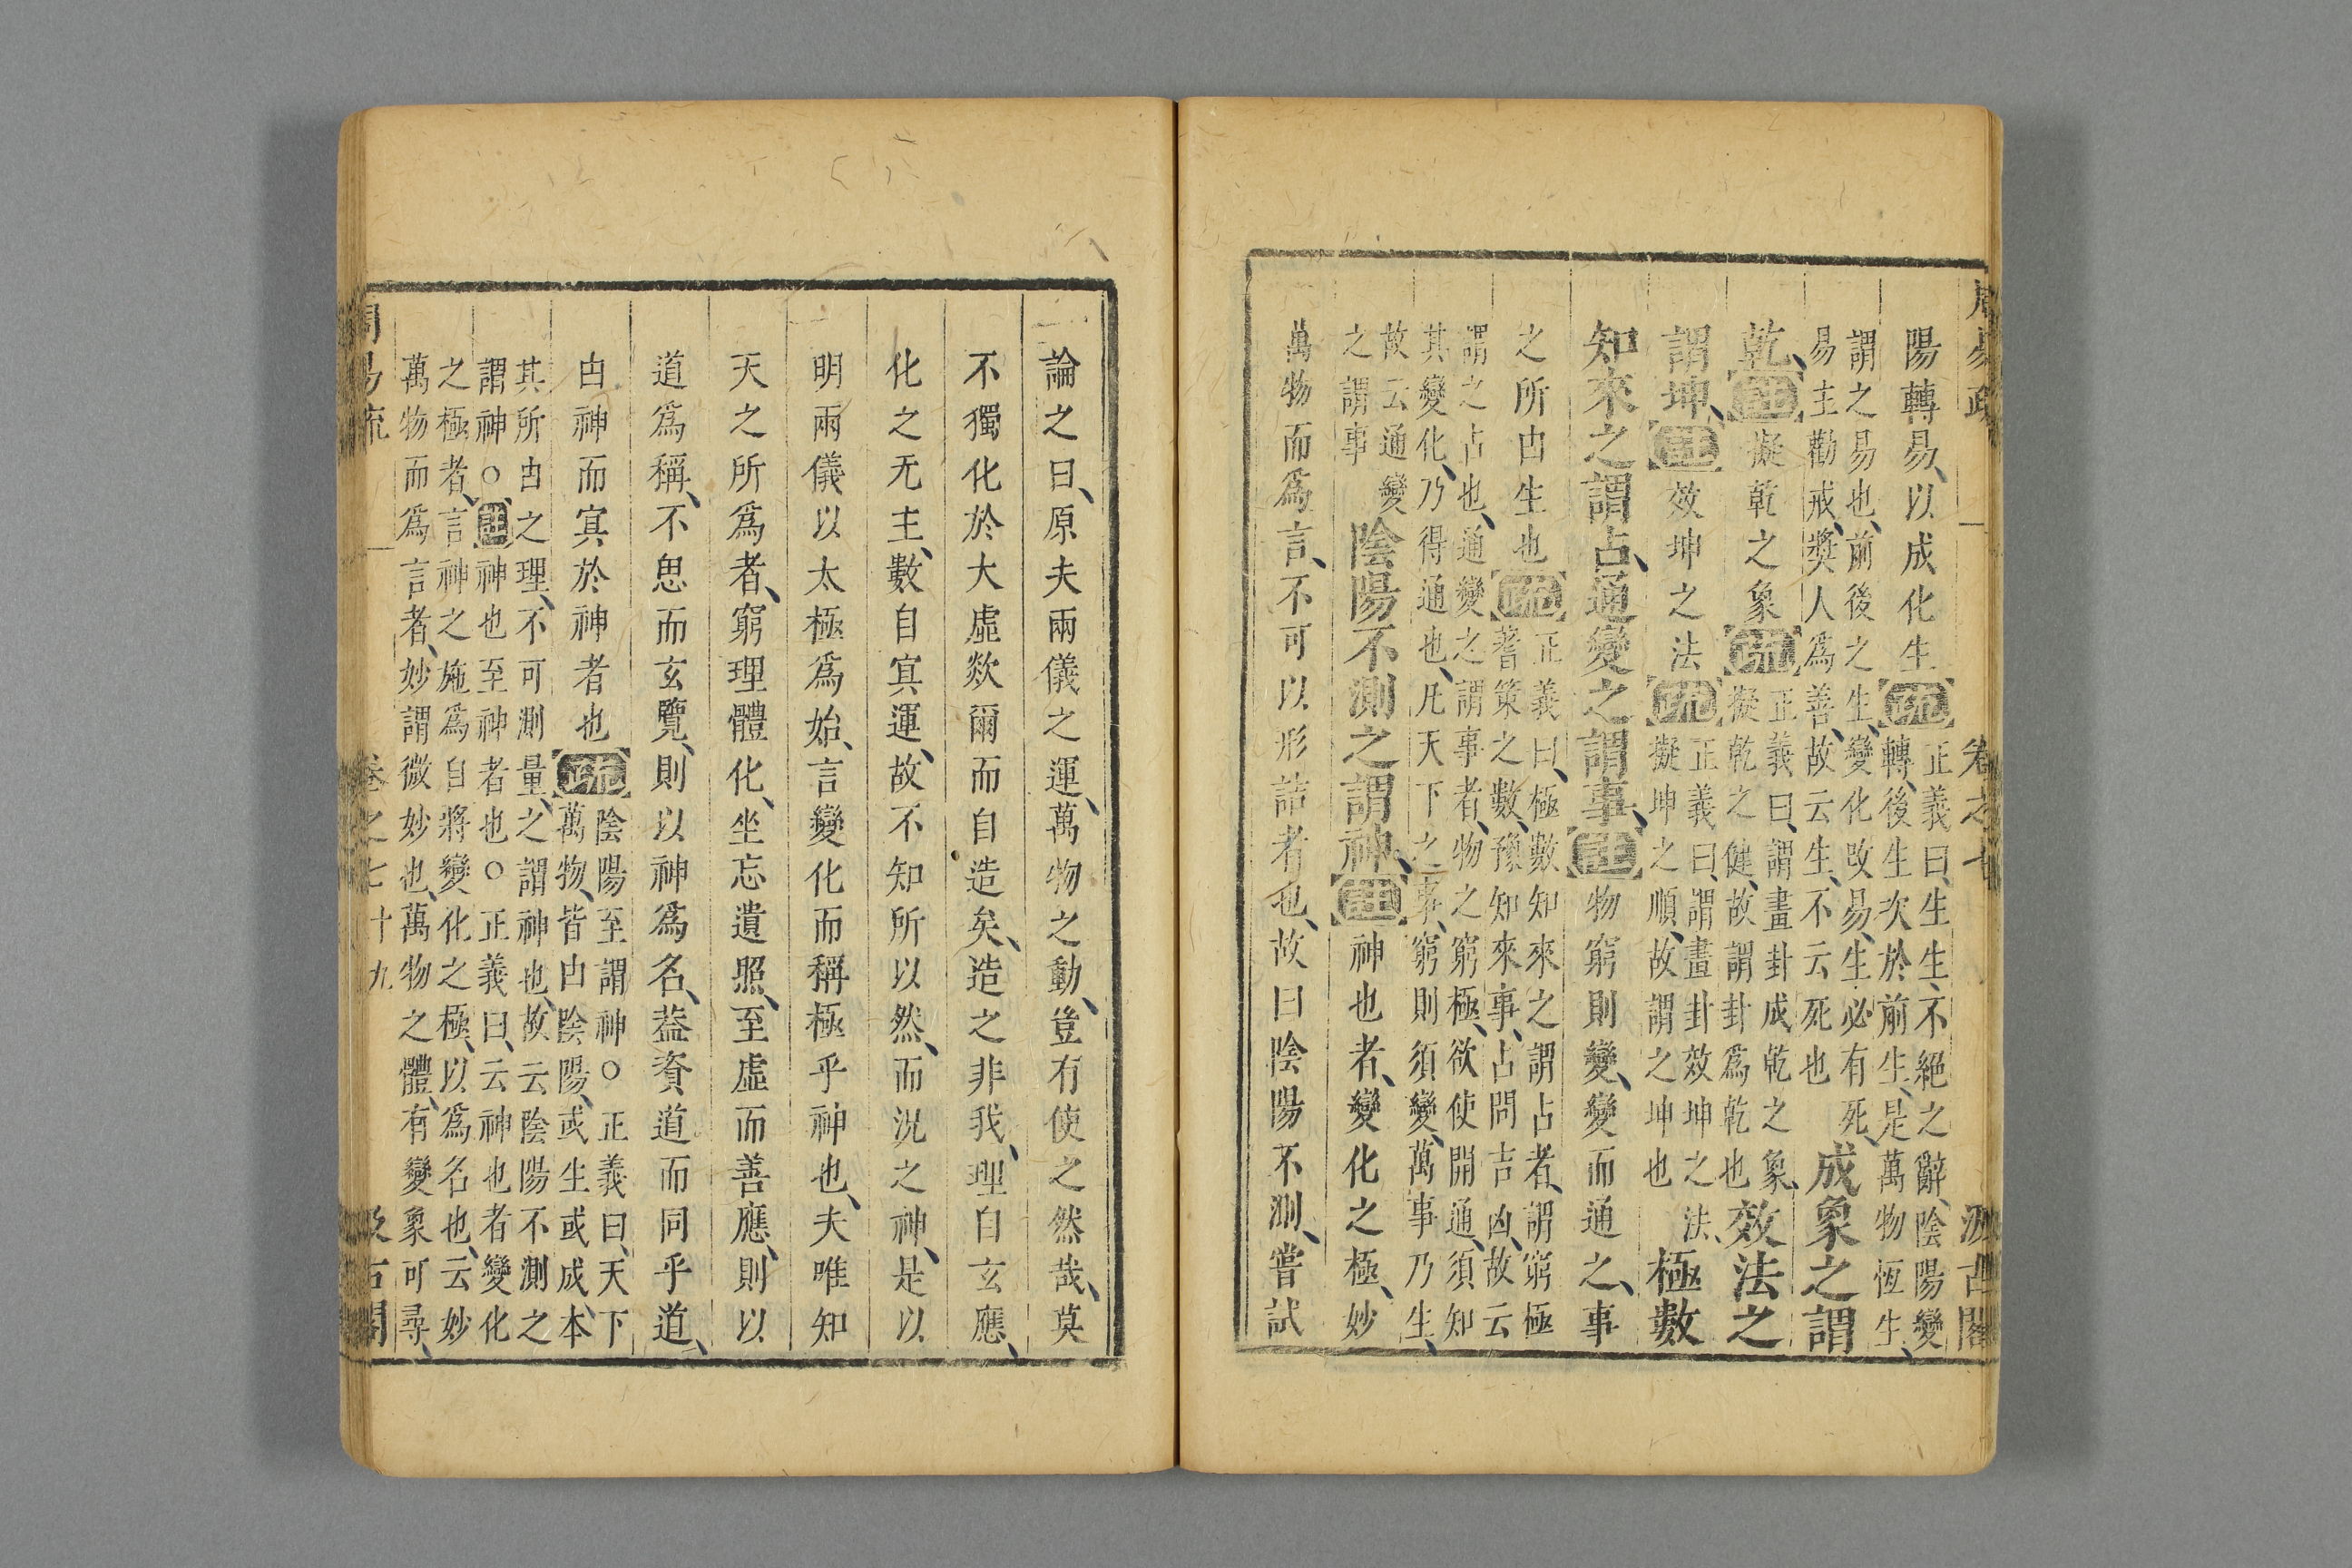 周易疏　卷之七　汲古閣
陽轉易、以成化生疏正義曰、生生、不絕之辭、陰陽變
轉、後生次於前生、是萬物恆生、
謂之易也、前後之生、變化改易、生必有死、
易主勸戒、奬人爲善、故云生、不云死也
成象之謂
乾、註擬乾之象疏正義曰、謂畫卦成乾之象、
擬乾之健、故謂卦爲乾也
效法之
謂坤、註效坤之法疏正義曰、謂畫卦效坤之法、
擬坤之順、故謂之坤也
極數
知來之謂占、通變之謂事、註物窮則變、變而通之、事
之所由生也疏正義曰、極數知來之謂占者、謂窮極
蓍策之數、豫知來事、占問吉凶、故云
謂之占也、通變之謂事者、物之窮極、欲使開通、須知
其變化、乃得通也、凡天下之事、窮則須變、萬事乃生、
故云通變
之謂事
陰陽不測之謂神、註神也者、變化之極、妙
萬物而爲言、不可以形詰者也、故曰陰陽不測、嘗試
論之曰、原夫兩儀之運、萬物之動、豈有使之然哉、莫
不獨化於大虛欻爾而自造矣、造之非我、理自玄應、
化之无主、數自冥運、故不知所以然、而況之神、是以
明兩儀以太極爲始、言變化而稱極乎神也、夫唯知
天之所爲者、窮理體化、坐忘遺照、至虛而善應、則以
道爲稱、不思而玄覽、則以神爲名、葢資道而同乎道、
由神而冥於神者也疏陰陽至謂神○正義曰、天下
萬物、皆由陰陽、或生或成、本
其所由之理、不可測量、之謂神也、故云陰陽不測之
謂神○註神也至神者也○正義曰、云神也者變化
之極者、言神之施爲自將變化之極、以爲名也、云妙
萬物而爲言者、妙謂微妙也、萬物之體、有變象可尋、
周易疏　卷之七　十九　汲古閣